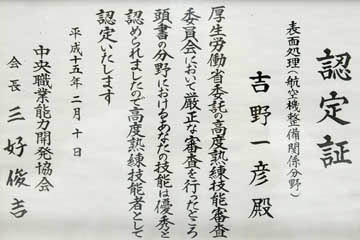 認定証
表面処理(航空機整備関係分野)
吉野一彦殿
厚生労働省委託の高度熟練技能審査
委員会において厳正な審査を行ったところ
頭書の分野におけるあなたの技能は優秀と
認められましたので高度熟練技能者として
認定いたします
平成十五年二月十日
中央職業能力開発協会
会長 三好俊吉